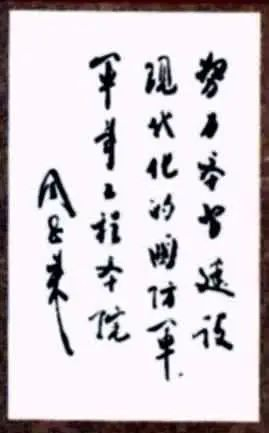 努力学習建設
现代化的國防军
军事工程学院
周恩来